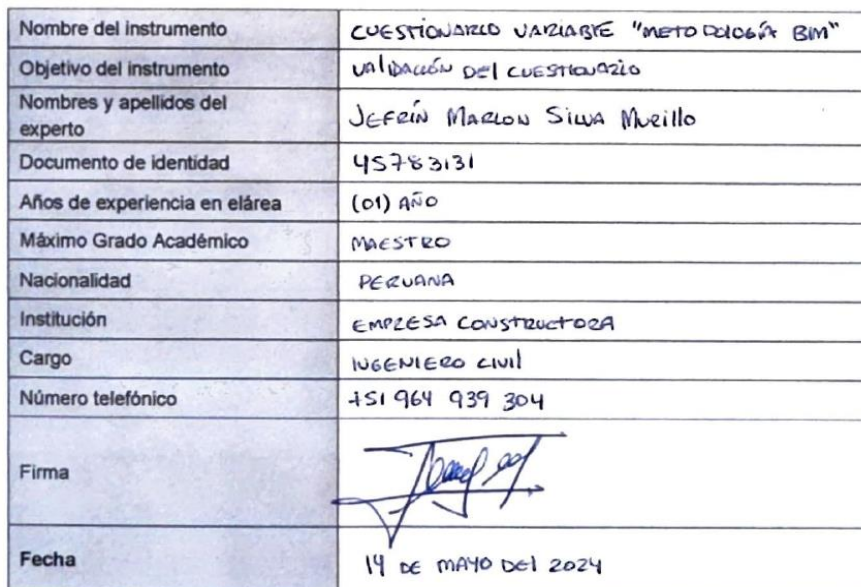 Nombre del instrumento CUESTIONARIO VARIABLE "METODOLOGÍA BIM"
Objetivo del instrumento VALIDACIÓN DEL CUESTIONARIO
Nombres y apellidos del
experto JEFRÍN MARLON SILVA MURILLO
Documento de identidad 45783131
Años de experiencia en elárea (01) AÑO
Máximo Grado Académico MAESTRO
Nacionalidad PERUANA
Institución EMPRESA CONSTRUCTORA
Cargo INGENIERO CIVIL
Número telefónico +51 964 939 304
Firma
Fecha 14 DE MAYO DEL 2024